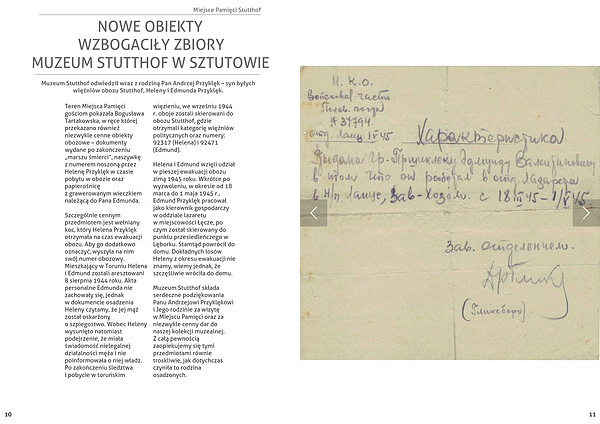 Miejsce Pamięci Stutthof
NOWE OBIEKTY
WZBOGACIŁY ZBIORY
MUZEUM STUTTHOF W SZTUTOWIE
Muzeum Stutthof odwiedził wraz z rodziną Pan Andrzej Przyklęk – syn byłych
więźniów obozu Stutthof, Heleny i Edmunda Przyklęk.
Teren Miejsca Pamięci
gościom pokazała Bogusława
Tartakowska, w ręce której
przekazano również
niezwykle cenne obiekty
obozowe – dokumenty
wydane po zakończeniu
„marszu śmierci”, naszywkę
z numerem noszoną przez
Helenę Przyklęk w czasie
pobytu w obozie oraz
papierośnicę
z grawerowanym wieczkiem
należącą do Pana Edmunda.
Szczególnie cennym
przedmiotem jest wełniany
koc, który Helena Przyklęk
otrzymała na czas ewakuacji
obozu. Aby go dodatkowo
oznaczyć, wyszyła na nim
swój numer obozowy.
Mieszkający w Toruniu Helena
i Edmund zostali aresztowani
8 sierpnia 1944 roku. Akta
personalne Edmunda nie
zachowały się, jednak
w dokumencie osadzenia
Heleny czytamy, że jej mąż
został oskarżony
o szpiegostwo. Wobec Heleny
wysunięto natomiast
podejrzenie, że miała
świadomość nielegalnej
działalności męża i nie
poinformowała o niej władz.
Po zakończeniu śledztwa
i pobycie w toruńskim
więzieniu, we wrześniu 1944
r. oboje zostali skierowani do
obozu Stutthof, gdzie
otrzymali kategorię więźniów
politycznych oraz numery:
92317 (Helena) i 92471
(Edmund).
Helena i Edmund wzięli udział
w pieszej ewakuacji obozu
zimą 1945 roku. Wkrótce po
wyzwoleniu, w okresie od 18
marca do 1 maja 1945 r.,
Edmund Przyklęk pracował
jako kierownik gospodarczy
w oddziale lazaretu
w miejscowości Łęcze, po
czym został skierowany do
punktu przesiedleńczego w
Lęborku. Stamtąd powrócił do
domu. Dokładnych losów
Heleny z okresu ewakuacji nie
znamy, wiemy jednak, że
szczęśliwie wróciła do domu.
Muzeum Stutthof składa
serdeczne podziękowania
Panu Andrzejowi Przyklękowi
i jego rodzinie za wizytę
w Miejscu Pamięci oraz za
niezwykle cenny dar do
naszej kolekcji muzealnej.
Z całą pewnością
zaopiekujemy się tymi
przedmiotami równie
troskliwie, jak dotychczas
czyniła to rodzina
osadzonych.
10
Н. К. О.
Войсковая часть
Полев. почта
№ 37794
Характеристика
Выдана Гр. Пришклеку Эдмунду Валентиновичу
в том что он работал в отд. Лазарета
в Н/п. Ланце, Зав-Хозом. с 18/III 45 - 1/V 45
Зав. отделением.
(Гликсберг)
11